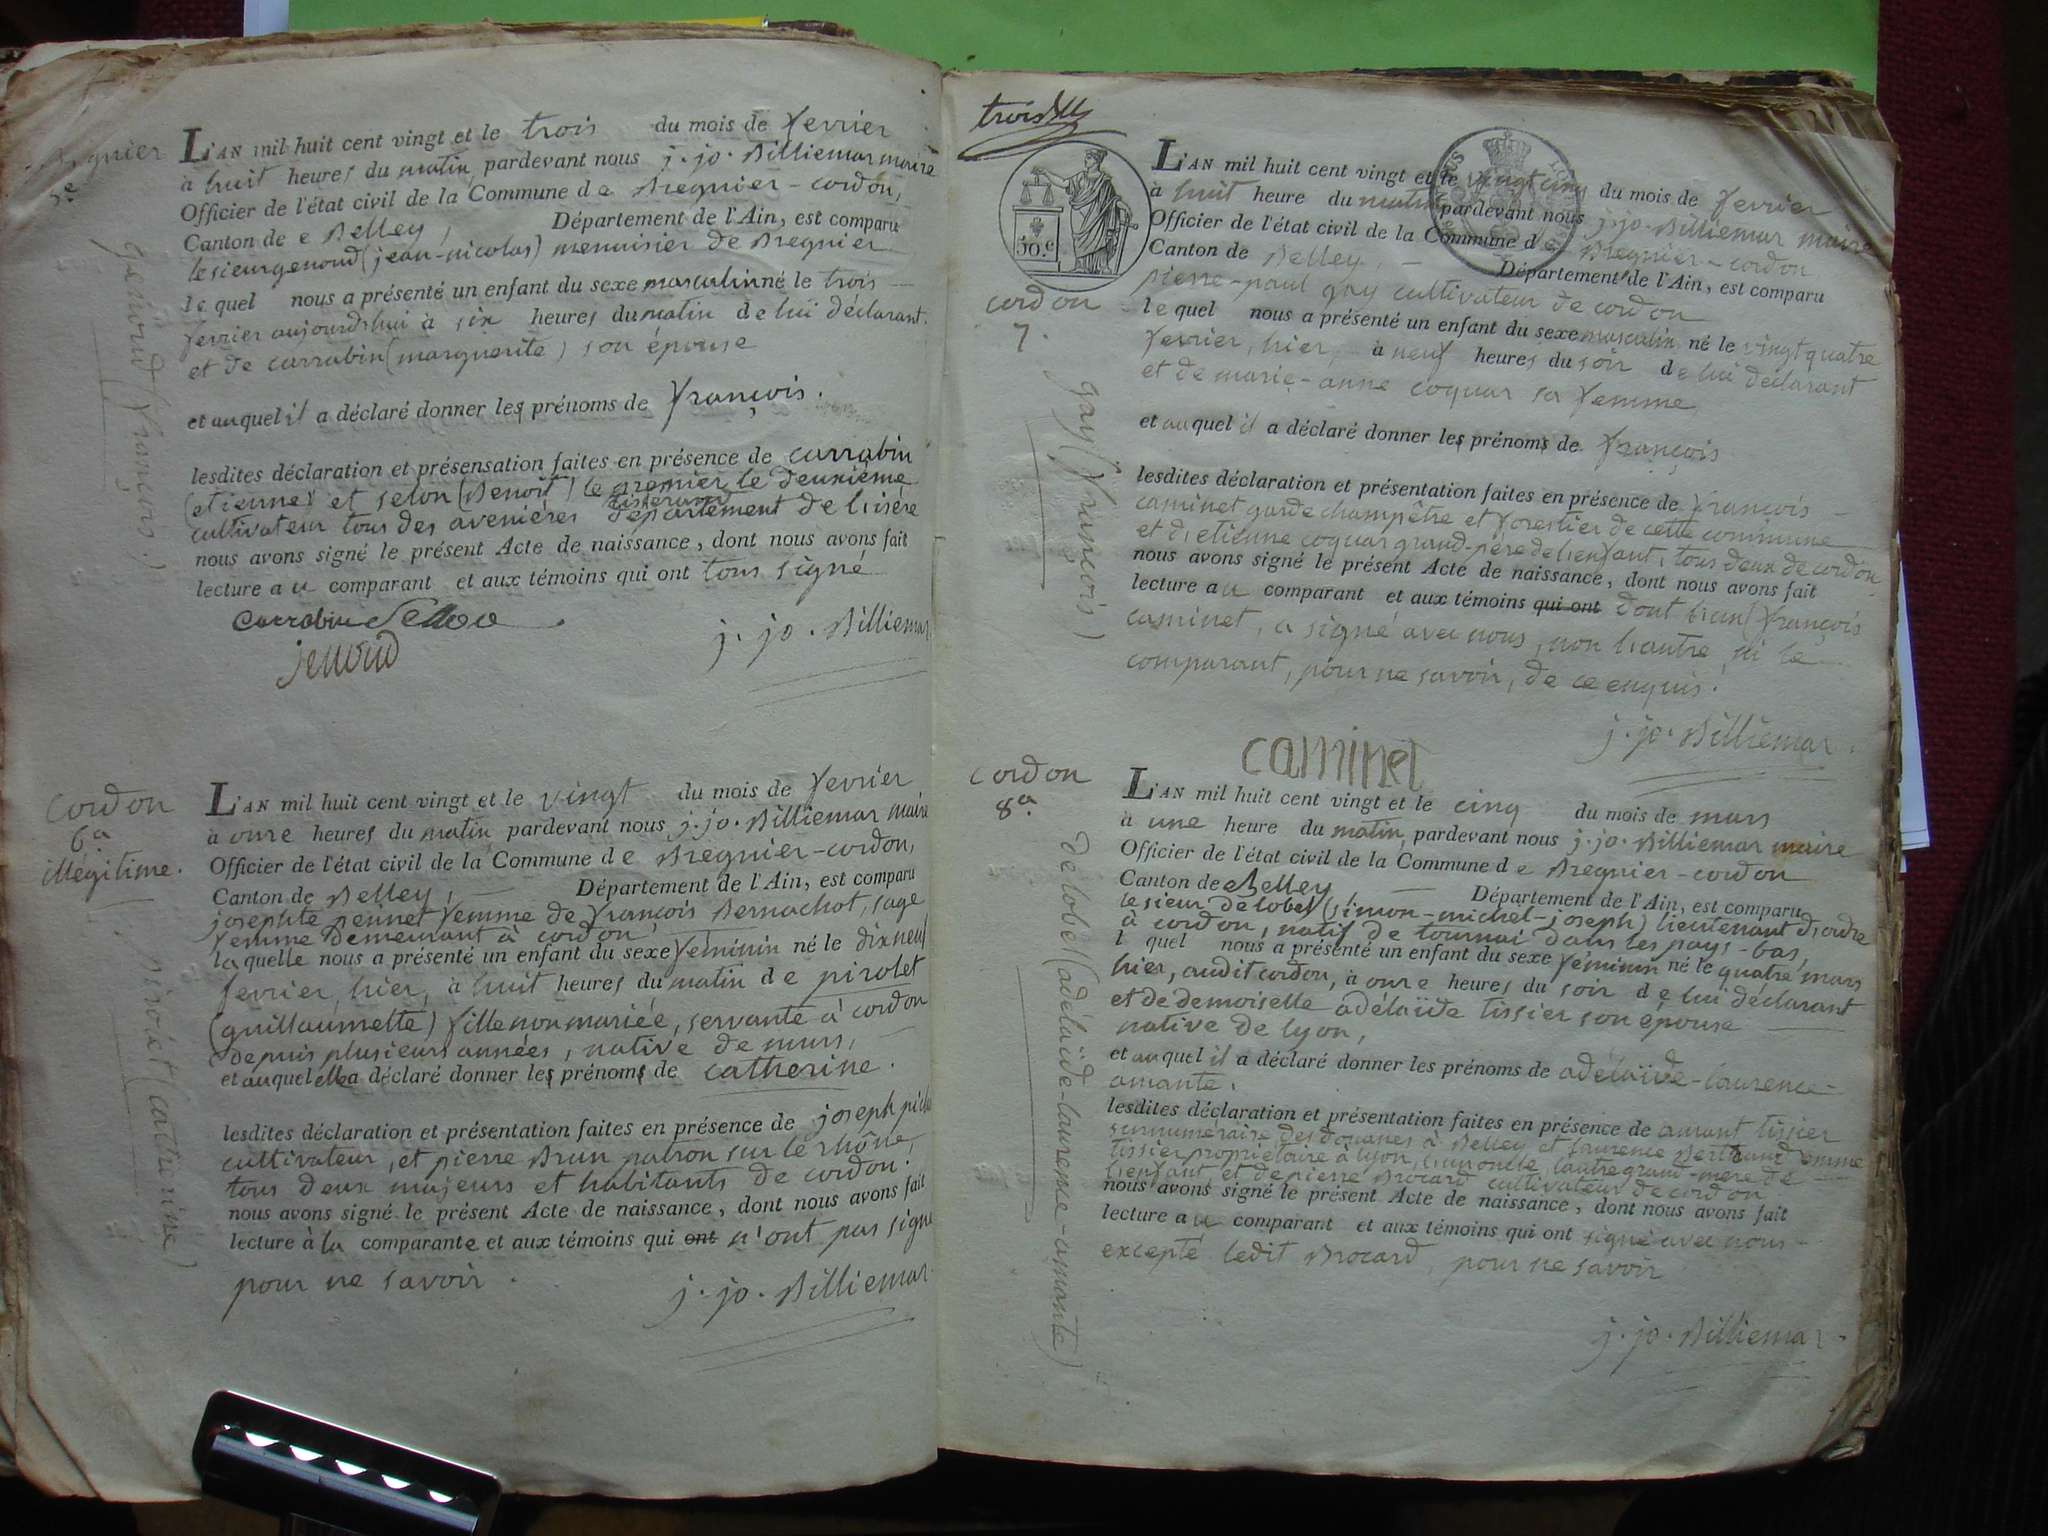 Bregnier
5e
genoud (françois)
L'AN mil huit cent vingt et le trois du mois de fevrier
à huit heures du matin pardevant nous j. jo. Billiemar maire
Officier de l'état civil de la Commune de Bregnier-cordon,
Canton de Belley, Département de l'Ain, est comparu
le sieur genoud (jean-nicolas) menuisier de Bregnier
lequel nous a présenté un enfant du sexe masculin né le trois
fevrier aujourd'hui à six heures du matin de lui déclarant
et de carrabin (marguerite) son épouse
et auquel il a déclaré donner les prénoms de françois.
lesdites déclaration et présensation faites en présence de carrabin
(etienne) et selon (Benoit) le premier le deuxième
cultivateur tous des avenières département de l'isère
tisserand
nous avons signé le présent Acte de naissance, dont nous avons fait
lecture au comparant et aux témoins qui ont tous signé
Carrabin Sellon
jenoud
j. jo. Billiemar
Cordon
6a
illégitime.
pirolet (catherine)
L'AN mil huit cent vingt et le vingt du mois de fevrier
à onze heures du matin pardevant nous j. jo. Billiemar maire
Officier de l'état civil de la Commune de Bregnier-cordon,
Canton de Belley, Département de l'Ain, est comparu
josephte pennet femme de françois Bernachot, sage
femme demeurant à cordon,
laquelle nous a présenté un enfant du sexe féminin né le dix neuf
fevrier, hier, à huit heures du matin de pirolet
(guillaumette) fille non mariée, servante à cordon
depuis plusieurs années, native de murs,
et auquel elle a déclaré donner les prénoms de catherine.
lesdites déclaration et présentation faites en présence de joseph
cultivateur, et pierre Brun patron sur le rhône,
tous deux majeurs et habitants de cordon.
nous avons signé le présent Acte de naissance, dont nous avons fait
lecture à la comparante et aux témoins qui ont n'ont pas signé
pour ne savoir.
j. jo. Billiemar
trois
30.c
cordon
7.
gay (françois)
L'AN mil huit cent vingt et le vingt cinq du mois de fevrier
à huit heure du matin pardevant nous j. jo. Billiemar maire
Officier de l'état civil de la Commune de Bregnier-cordon
Canton de Belley, Département de l'Ain, est comparu
pierre-paul gay cultivateur de cordon
lequel nous a présenté un enfant du sexe masculin né le vingt quatre
fevrier, hier, à neuf heures du soir de lui déclarant
et de marie-anne coquar sa femme
et auquel il a déclaré donner les prénoms de françois
lesdites déclaration et présentation faites en présence de françois
caminet garde champêtre et forestier de cette commune
et d'etienne coquar grand-père de l'enfant, tous deux de cordon
nous avons signé le présent Acte de naissance, dont nous avons fait
lecture au comparant et aux témoins qui ont dont l'un (françois
caminet, a signé avec nous, non l'autre, ni le
comparant, pour ne savoir, de ce enquis.
j. jo. Billiemar.
caminet
cordon
8a.
delobel (adélaïde-laurence-amante)
L'AN mil huit cent vingt et le cinq du mois de mars
à une heure du matin pardevant nous j. jo. Billiemar maire
Officier de l'état civil de la Commune de Bregnier-cordon
Canton de Belley Département de l'Ain, est comparu
le sieur delobel (simon-michel-joseph) lieutenant d'ordre
à cordon, natif de tournai dans les pays-bas,
l quel nous a présenté un enfant du sexe féminin né le quatre mars
hier, audit cordon, à onze heures du soir de lui déclarant
et de demoiselle adélaïde tissier son épouse
native de lyon,
et auquel il a déclaré donner les prénoms de adélaïde-laurence-
amante.
lesdites déclaration et présentation faites en présence de amant tissier
surnuméraire des douanes à Belley et laurence Bertrand femme
tissier propriétaire à lyon, l'un oncle, l'autre grand-mère de
l'enfant, et de pierre Brocard cultivateur de cordon
nous avons signé le présent Acte de naissance, dont nous avons fait
lecture au comparant et aux témoins qui ont signé avec nous
excepté ledit Brocard, pour ne savoir
j. jo. Billiemar